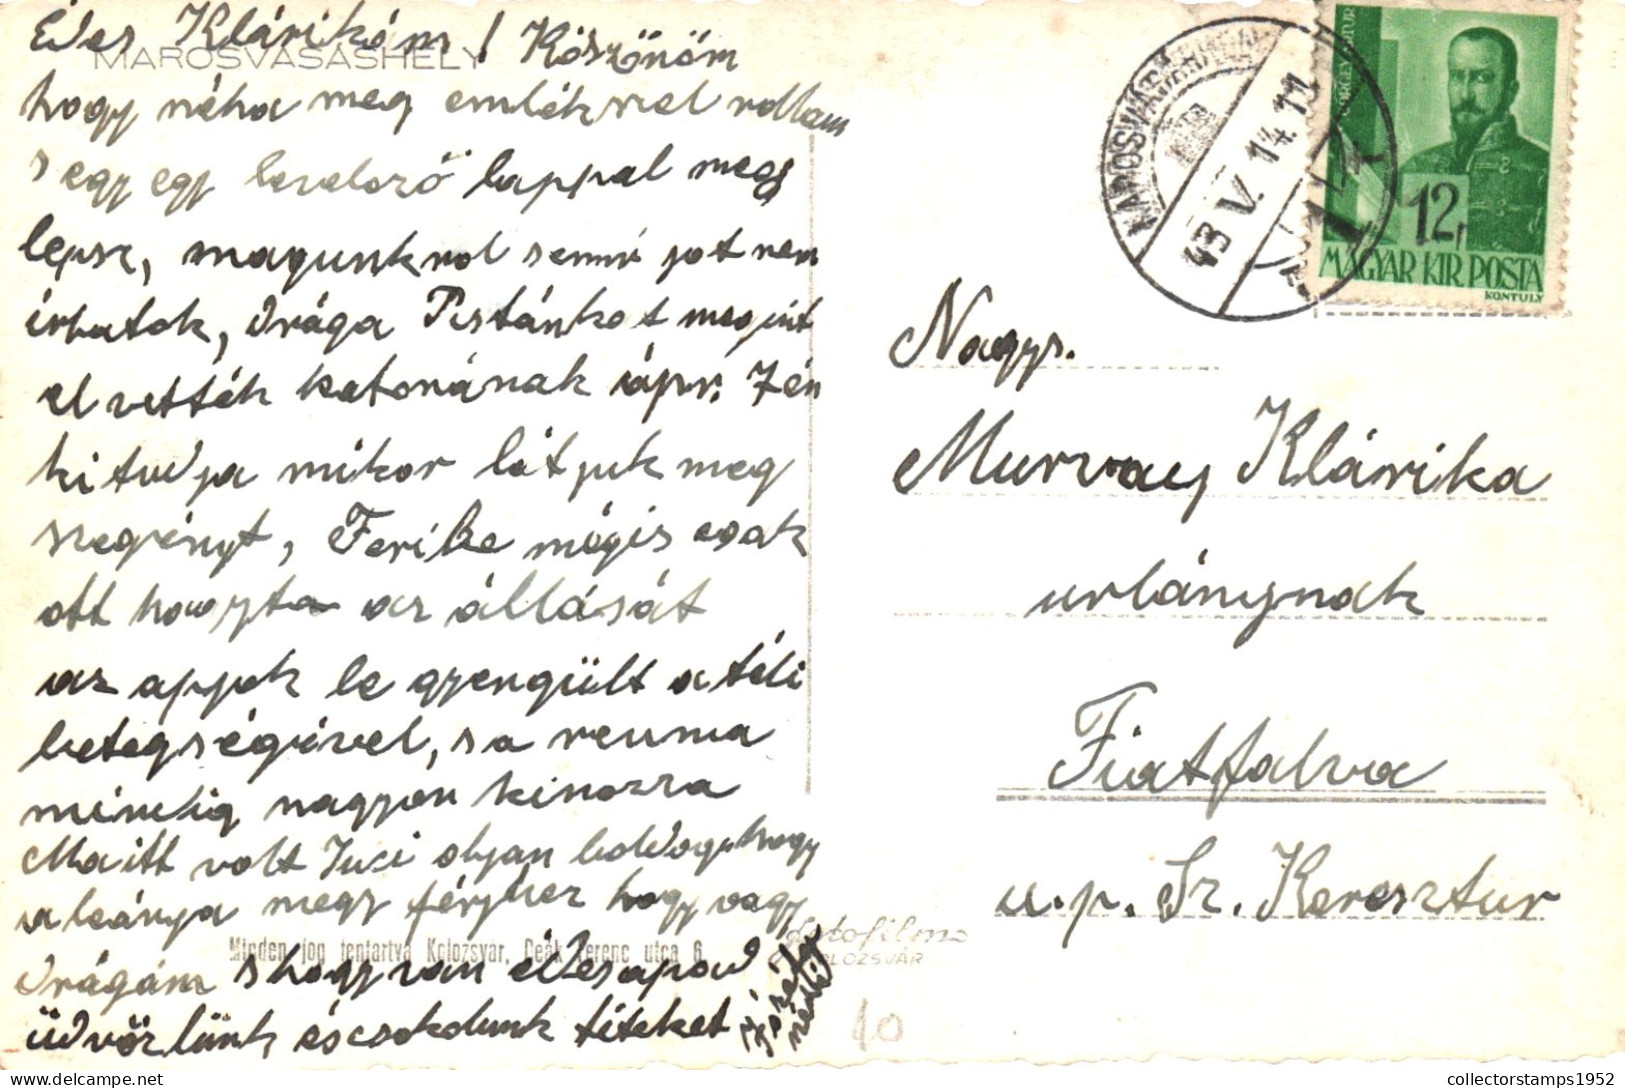 Édes Klárikám! Köszönöm
MAROSVÁSÁSHELY
hogy néha meg emlékszel rollam
s egy egy levelező lappal meg
lepsz, magunkrol semmi jot nem
írhatok, drága Pistánkot megint
el vették katonának ápr. 7 én
ki tudja mikor látjuk meg
szegényt, Ferike mégis csak
ott hagyta az állását
az appok le gyengült a téli
betegségével, s a reuma
mindig nagyon kinozza
Ma itt volt Juci olyan boldog hogy
a leánya megy férjhez hogy vagy
drágám s hogy van édesapád
üdvözlünk és csokolunk titeket
Minden jog fentartva Kolozsvár, Deák Ferenc utca 6.
Fotofilm
KOLOZSVÁR
10
MAROSVÁSÁRHELY
43 V. 14. 11
1
GÖRGEY ARTUR
12
MAGYAR KIR POSTA
KONTULY
Nagys.
Murvay Klárika
urlánynak
Fiatfalva
u.p. Sz. Keresztur
collectorstamps1952